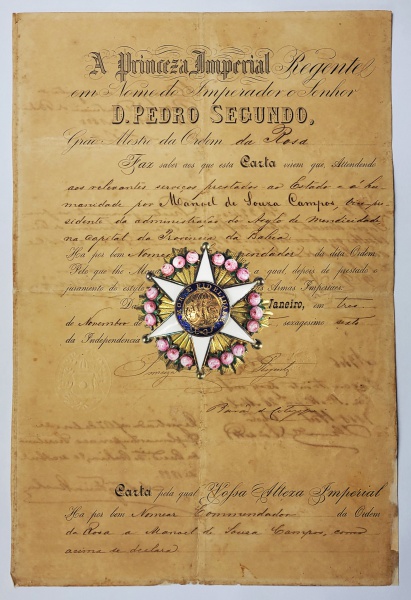 A Princeza Imperial Regente
em Nome do Imperador o Senhor
D. PEDRO SEGUNDO,
Grão Mestre da Ordem da Rosa
Faz saber aos que esta Carta virem que, Attendendo
aos relevantes serviços prestados ao Estado e á hu
manidade por Manoel de Souza Campos, vice-pre
sidente da administração do Asylo de Mendicidade
na Capital da Provincia da Bahia
Ha por bem Nomea mendador da dita Ordem.
Pelo que lhe Ma a qual, depois de prestado o
juramento do estylo Armas Imperiaes
D Janeiro, em tres
de Novembro de sexagesimo sexto
da Independencia
Carta pela qual Vossa Alteza Imperial
Ha por bem Nomear Commendador da Ordem
da Rosa a Manoel de Souza Campos, como
acima se declara